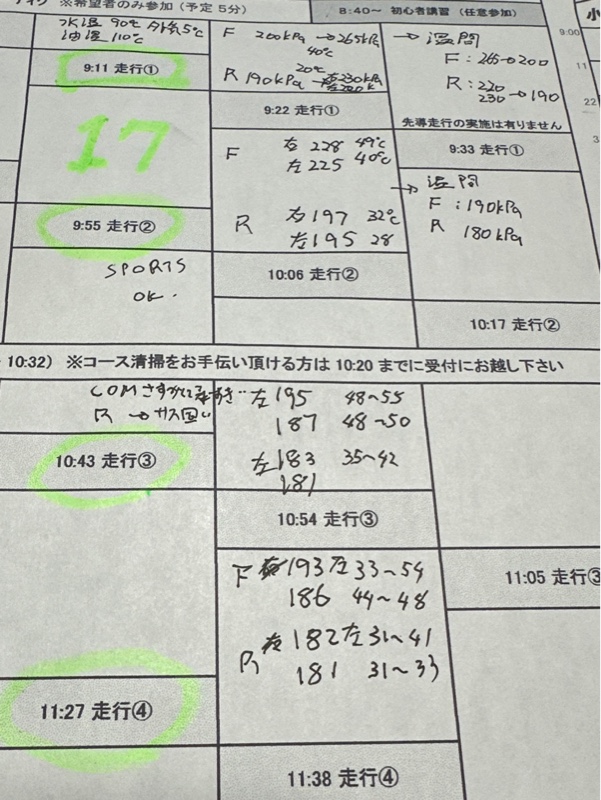 ※希望者のみ参加（予定 5分）
8:40～ 初心者講習 （任意参加）
小
水温 90℃ 外気5℃
油温 110℃
9:11 走行①
17
9:55 走行②
SPORTS
OK.
F 200kPa → 265kPa
40℃
20℃
R 190kPa → 右230kPa
9:22 走行①
F 右 228 49℃
左 225 40℃
R 右 197 32℃
左 195 28
10:06 走行②
→ 温間
F : 265→200
R : 220
230 → 190
先導走行の実施は有りません
9:33 走行①
→ 温間
F : 190kPa
R 180kPa
10:17 走行②
9:00
11
22
3
10:32） ※コース清掃をお手伝い頂ける方は 10:20 までに受付にお越し下さい
COM
R →
10:43 走行③
11:27 走行④
左 195 48～55
187 48～50
左 183 35～42
181
10:54 走行③
F 193 左 33～54
186 44～48
R 右 182 左 31～41
181 31～33
11:38 走行④
11:05 走行③